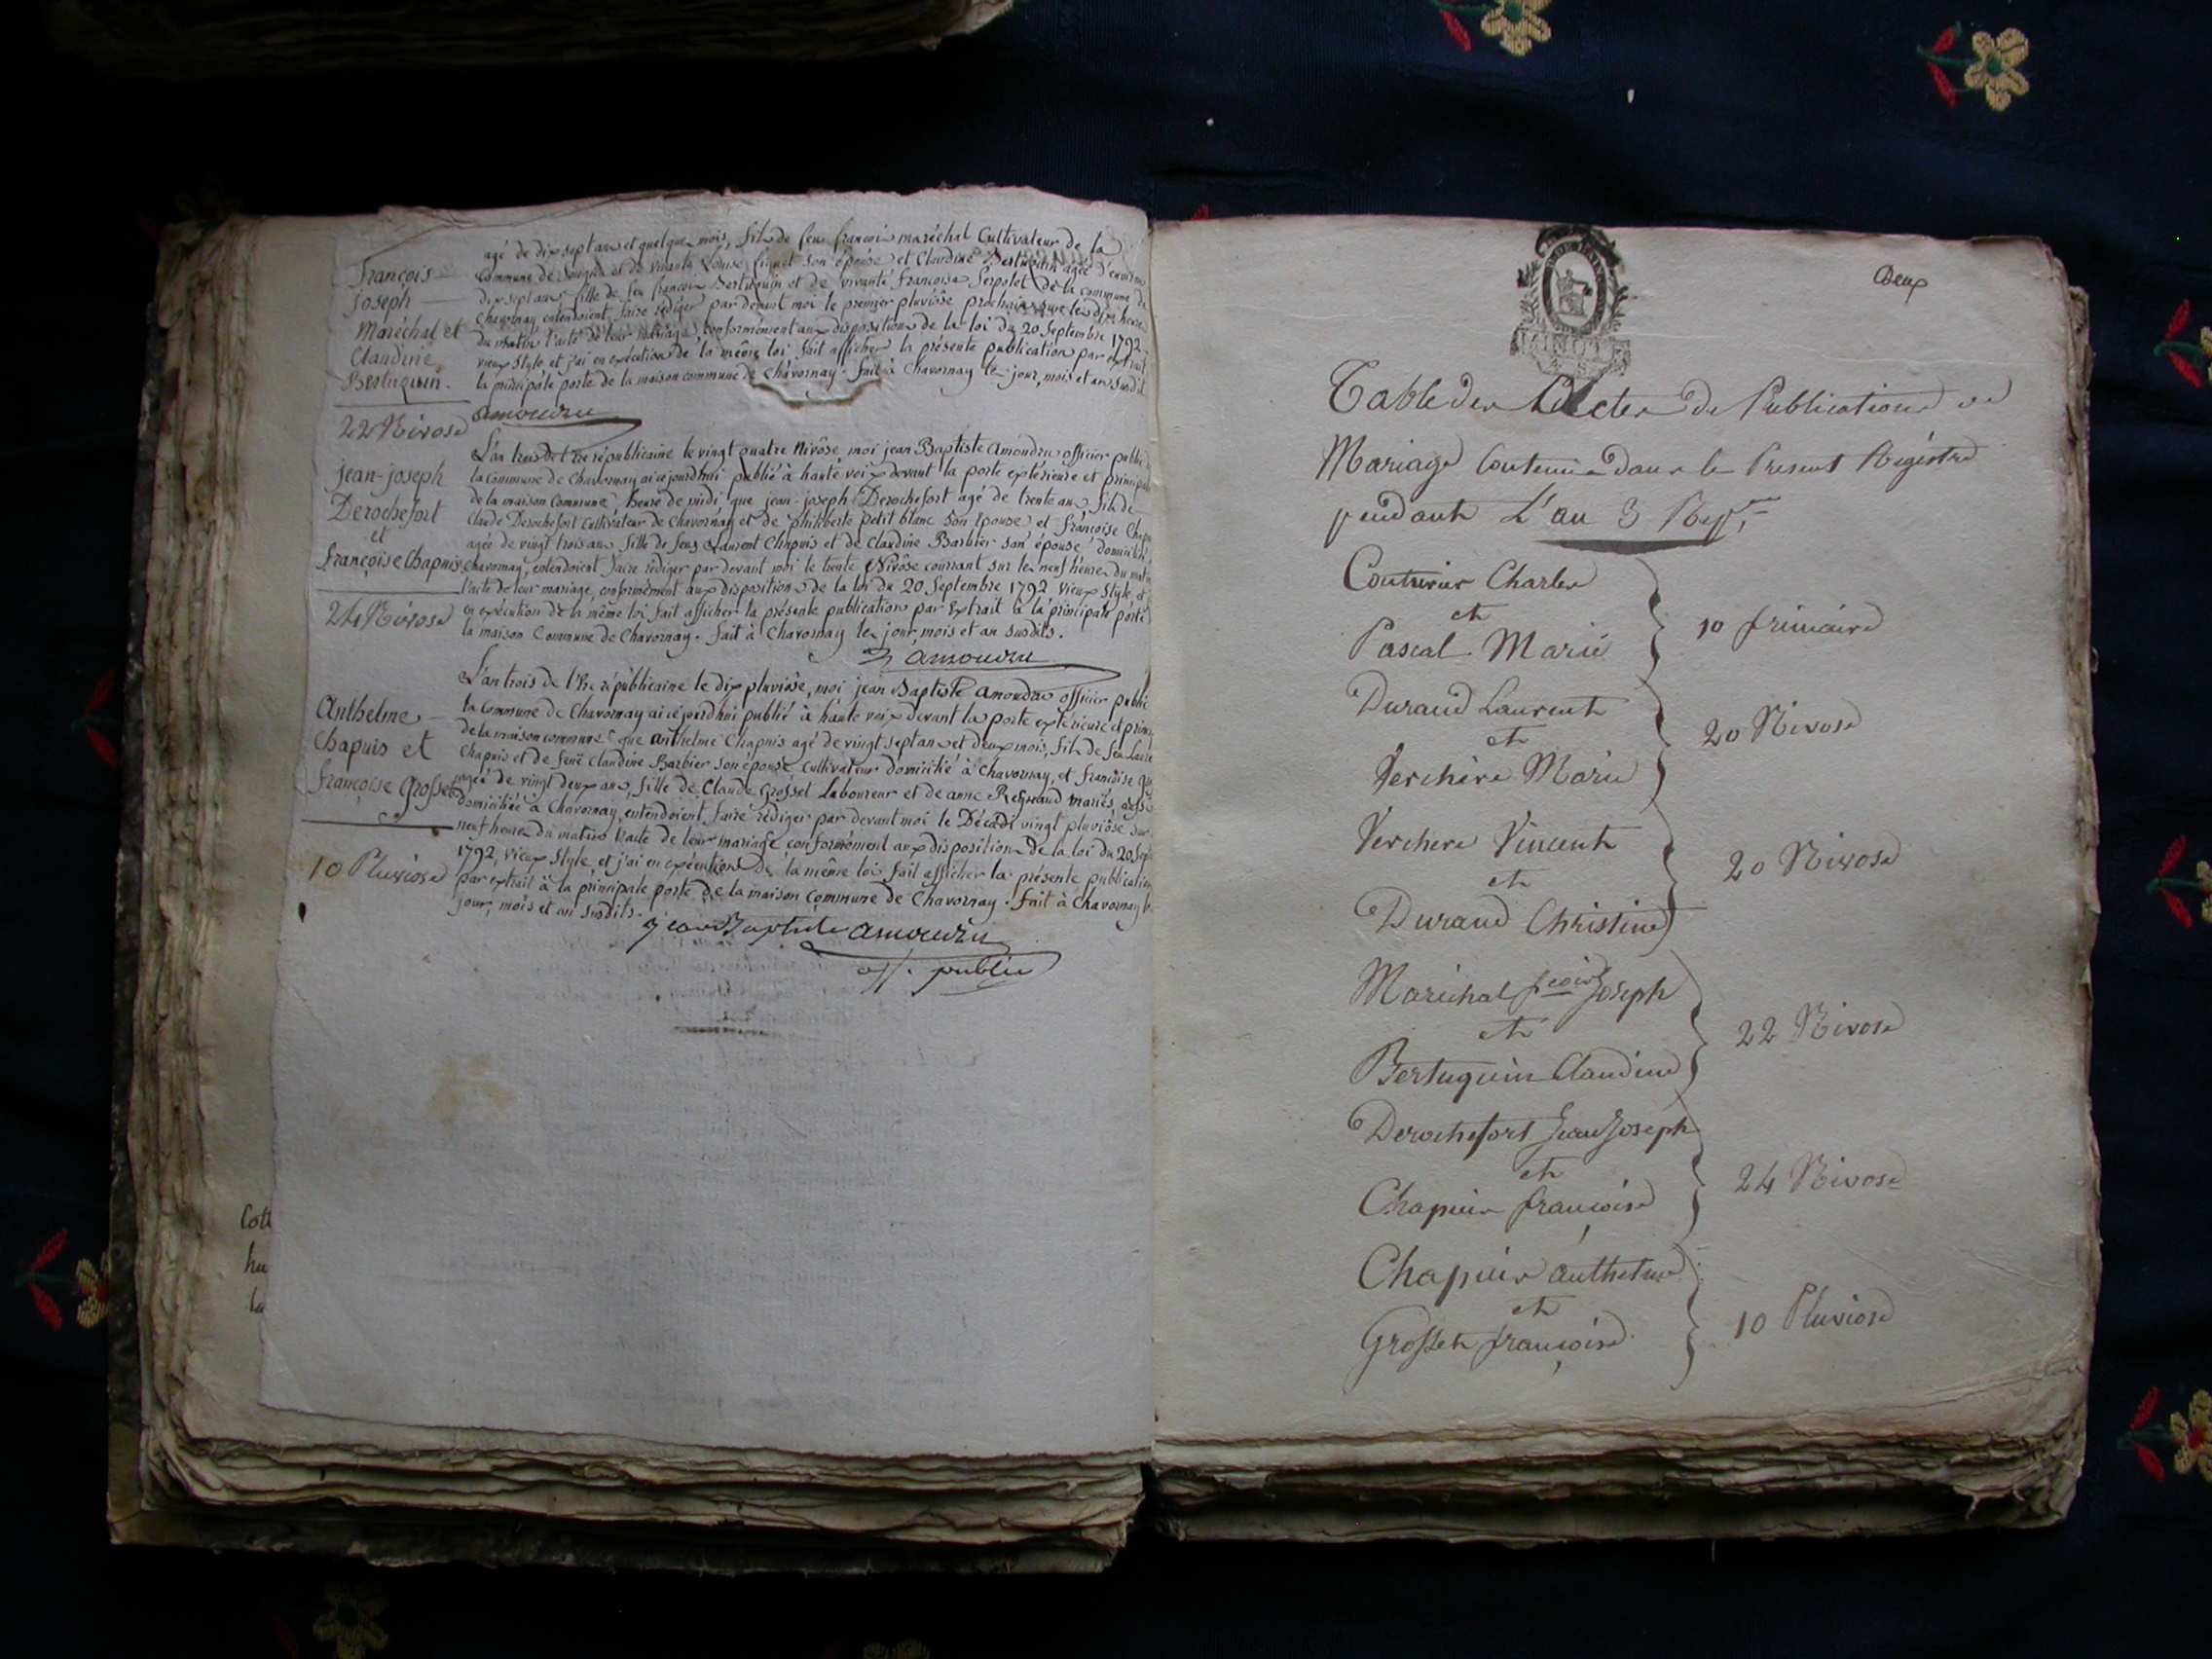 François
Joseph
Maréchal et
Claudine
Bertuquin.
22 Nivose
agé de dix sept ans et quelque mois, fils de feu françois maréchal Cultivateur de la
Commune de Songieu et de vivante Louise son épouse et Claudine Bertuquin agée d'environ
dix sept ans fille de feu françois Bertuquin et de vivante françoise Serpolet de la commune de
Chavornay, entendoient faire rédiger par devant moi le premier pluviôse prochain sur les dix heures
du matin l'acte de leur mariage, conformément aux dispositions de la loi du 20 Septembre 1792
vieux Style, et j'ai en exécution de la même loi fait afficher la présente publication par extrait
la principale porte de la maison commune de Chavornay. fait à Chavornay le jour, mois et an susdit
amoudru
jean-joseph
Derochefort
et
françoise Chapuis
24 Nivose
L'an trois de l'Ere républicaine le vingt quatre Nivôse, moi jean Baptiste Amoudru officier public
la Commune de Chavornay ai cejourdhui publié à haute voix devant la porte extérieure et principale
de la maison Commune, heure de midi, que jean-joseph Derochefort agé de trente ans, fils de
Claude Derochefort Cultivateur de Chavornay et de philiberte petit blanc son épouse et françoise Chapuis
agée de vingt trois ans fille de feus Laurent Chapuis et de Claudine Barbier son épouse domiciliée
Chavornay, entendoient faire rédiger par devant moi le trente Nivôse courrant sur les neuf heures du matin
l'acte de leur mariage, conformément aux dispositions de la loi du 20 Septembre 1792 vieux Style, et
en exécution de la même loi fait afficher la présente publication par extrait à la principale porte
la maison Commune de Chavornay. fait à Chavornay les jour, mois et an susdits.
amoudru
Anthelme
Chapuis et
françoise Grosset
10 Pluviose
L'an trois de l'Ere républicaine le dix pluviôse, moi jean Baptiste amoudru officier public
la Commune de Chavornay ai cejourdhui publié à haute voix devant la porte extérieure et princ
de la maison commune que anthelme Chapuis agé de vingt sept ans et deux mois, fils de feu Laure
Chapuis et de feue Claudine Barbier son épouse Cultivateur domicilié à Chavornay, et françoise Gro
agée de vingt deux ans, fille de Claude Grosset Laboureur et de anne Reynaud mariés, aussi
domiciliée à Chavornay, entendoient faire rédiger par devant moi le Décadi vingt pluviôse sur
neuf heures du matin l'acte de leur mariage conformément aux dispositions de la loi du 20 Sept
1792, vieux Style, et j'ai en exécution de la même loi fait afficher la présente publication
par extrait à la principale porte de la maison Commune de Chavornay. fait à Chavornay le
jour, mois et an susdits.
jean Baptiste amoudru
off. public
Cott
hu
la
Deux
Table des Actes de Publications de
Mariage Contenus dans le Present Régistre
pendant L'an 3 Rep.
Couturier Charles
et
Pascal Marie
10 frimaire
Durand Laurent
et
Verchere Marie
20 Nivose
Verchere Vincent
et
Durand Christine
20 Nivose
Maréchal fcois Joseph
et
Bertuquin Claudine
22 Nivose
Derochefort Jean Joseph
et
Chapuis françoise
24 Nivose
Chapuis anthelme
et
Grosset françoise
10 Pluviose